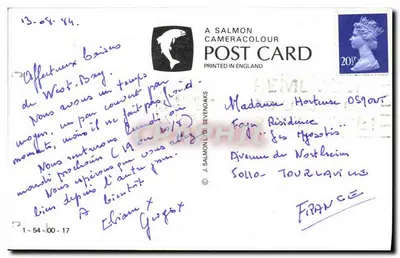 13.08.84.
Affectueux baisers
de West-Bay.
Nous avons un temps
moyen, un peu couvert par
moments, mais il ne fait pas froid.
Nous rentrons lundi ou
mardi prochain (19 ou 20/8)
Nous espérons que vous allez
bien depuis l'autre jour.
A bientôt
Eliane x Georges x
1-54-00-17
A SALMON
CAMERACOLOUR
POST CARD
PRINTED IN ENGLAND
© J. SALMON LTD. SEVENOAKS
20½P
Madame Hortense OSMONT
Foyer Résidence
"Les Myosotis"
Avenue de Northeim
50110 - TOURLAVILLE
FRANCE